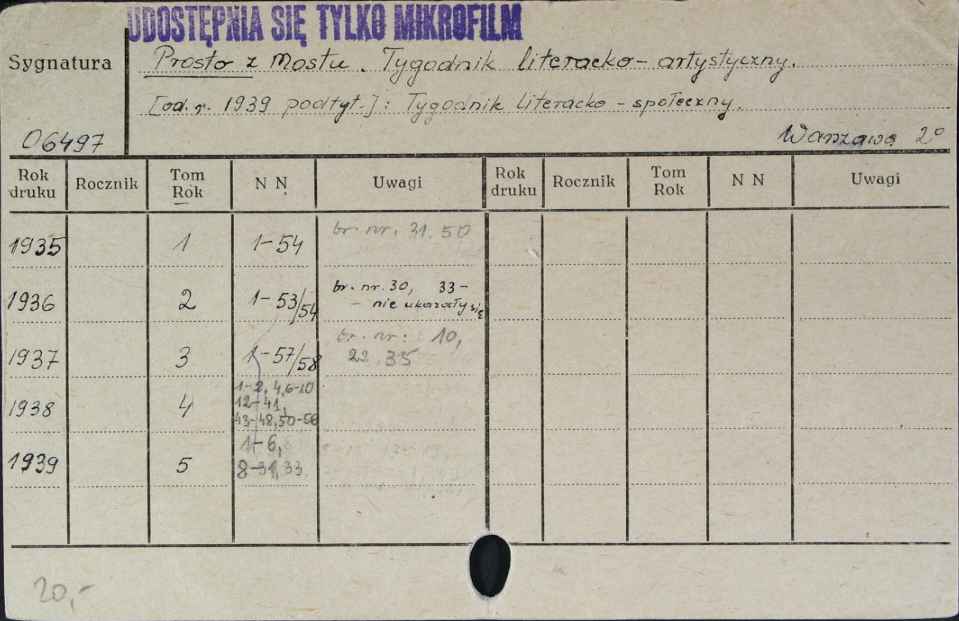 UDOSTĘPNIA SIĘ TYLKO MIKROFILM
Sygnatura
Prosto z Mostu. Tygodnik literacko-artystyczny.
[od r. 1939 podtyt.]: Tygodnik literacko-społeczny.
06497
Warszawa 2°
Rok druku Rocznik Tom Rok N N Uwagi Rok druku Rocznik Tom Rok N N Uwagi
1935 1 1-54 br. nr. 31. 50
1936 2 1-53/54 br. nr. 30, 33-
- nie ukazały się
1937 3 1-57/58 br. nr: 10,
22. 35
1938 4 1-2, 4,6-10
12-41,
43-48,50-
1939 5 1-6,
8-31,33
20,-